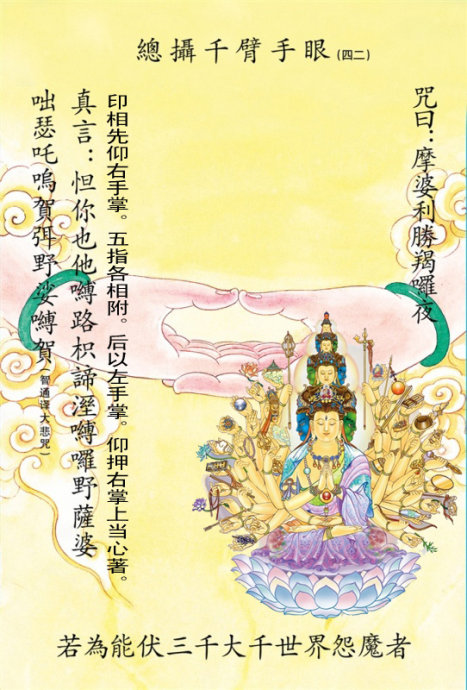 總攝千臂手眼(四二)
咒曰：摩婆利勝羯囉夜
印相先仰右手掌。五指各相附。后以左手掌。仰押右掌上当心著。
真言：怛你也他嚩路枳諦溼嚩囉野薩婆
咄瑟吒嗚賀弭野娑嚩賀(智通译大悲咒)
若為能伏三千大千世界怨魔者